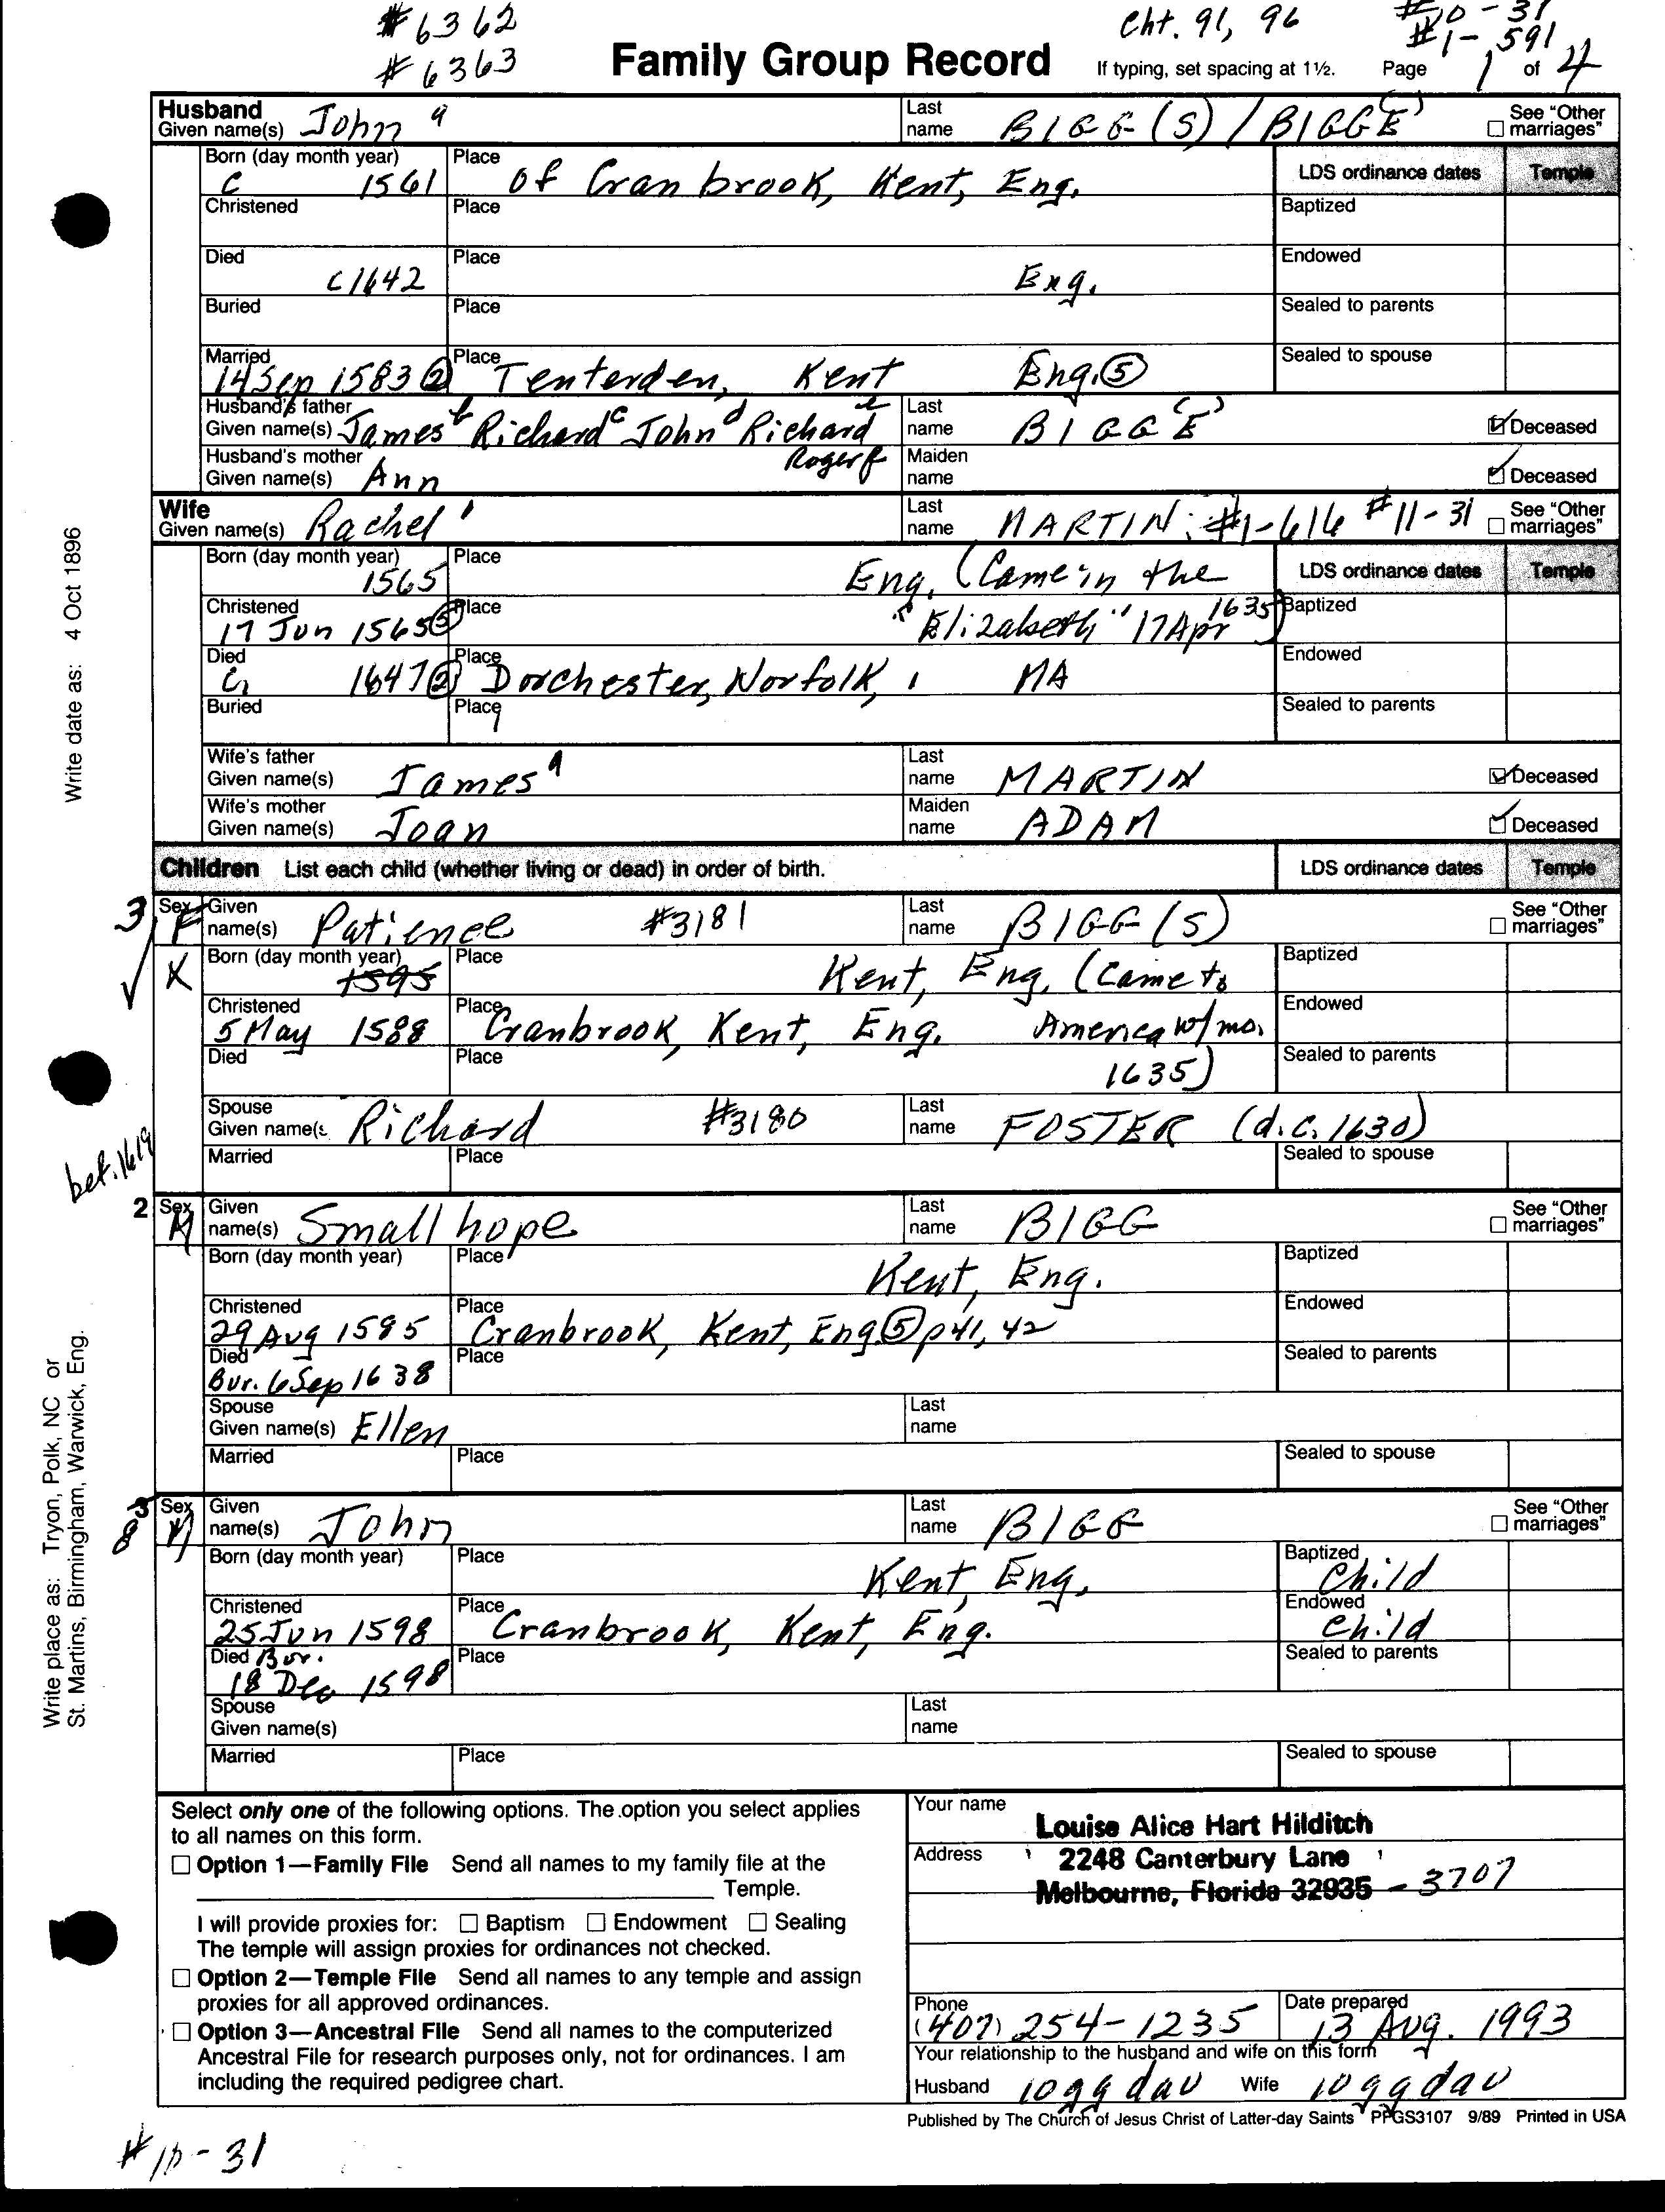 #6362 Cht. 91, 96 #10-31
#6363 Family Group Record If typing, set spacing at 1½. #1-591 Page 1 of 4
Husband
Given name(s) John a Last name BIGG(S)/BIGG(E) See "Other marriages"
Born (day month year) c 1561 Place of Cranbrook, Kent, Eng. LDS ordinance dates Temple
Christened Place Baptized
Died c1642 Place Eng. Endowed
Buried Place Sealed to parents
Married 14 Sep 1583 ② Place Tenterden, Kent Eng. ⑤ Sealed to spouse
Husband's father Given name(s) James b Richard c John d Richard e Last name BIGG(E) Deceased
Husband's mother Given name(s) Ann Roger f Maiden name Deceased
Wife
Given name(s) Rachel Last name MARTIN: #1-616 #11-31 See "Other marriages"
Born (day month year) 1565 Place Eng. (Came in the LDS ordinance dates Temple
Christened 17 Jun 1565 ⑤ Place "Elizabeth" 17 Apr 1635) Baptized
Died c 1647 ② Place Dorchester, Norfolk, MA Endowed
Buried Place Sealed to parents
Wife's father Given name(s) James a Last name MARTIN Deceased
Wife's mother Given name(s) Joan Maiden name ADAM Deceased
Children List each child (whether living or dead) in order of birth. LDS ordinance dates Temple
3 Sex F Given name(s) Patience #3181 Last name BIGG(S) See "Other marriages"
✓ X Born (day month year) 1595 Place Kent, Eng. (Came to Baptized
Christened 5 May 1588 Place Cranbrook, Kent, Eng. America w/mo. Endowed
Died Place 1635) Sealed to parents
Spouse Given name(s Richard #3180 Last name FOSTER (d.c. 1630)
bef. 1619 Married Place Sealed to spouse
2 Sex M Given name(s) Smallhope Last name BIGG See "Other marriages"
Born (day month year) Place Kent, Eng. Baptized
Christened 29 Aug 1585 Place Cranbrook, Kent, Eng. ⑤ p41, 42 Endowed
Died Bur. 6 Sep 1638 Place Sealed to parents
Spouse Given name(s) Ellen Last name
Married Place Sealed to spouse
3 8 Sex M Given name(s) John Last name BIGG See "Other marriages"
Born (day month year) Place Kent, Eng. Baptized Child
Christened 25 Jun 1598 Place Cranbrook, Kent, Eng. Endowed Child
Died Bur. 18 Dec 1598 Place Sealed to parents
Spouse Given name(s) Last name
Married Place Sealed to spouse
Select only one of the following options. The option you select applies
to all names on this form.
Option 1—Family File Send all names to my family file at the
Temple.
I will provide proxies for: Baptism Endowment Sealing
The temple will assign proxies for ordinances not checked.
Option 2—Temple File Send all names to any temple and assign
proxies for all approved ordinances.
Option 3—Ancestral File Send all names to the computerized
Ancestral File for research purposes only, not for ordinances. I am
including the required pedigree chart.
Your name Louise Alice Hart Hilditch
Address 2248 Canterbury Lane
Melbourne, Florida 32935 - 3707
Phone (407) 254-1235 Date prepared 13 Aug. 1993
Your relationship to the husband and wife on this form
Husband 10 gg dau Wife 10 gg dau
Published by The Church of Jesus Christ of Latter-day Saints PFGS3107 9/89 Printed in USA
#10-31
Write date as: 4 Oct 1896
Write place as: Tryon, Polk, NC or
St. Martins, Birmingham, Warwick, Eng.